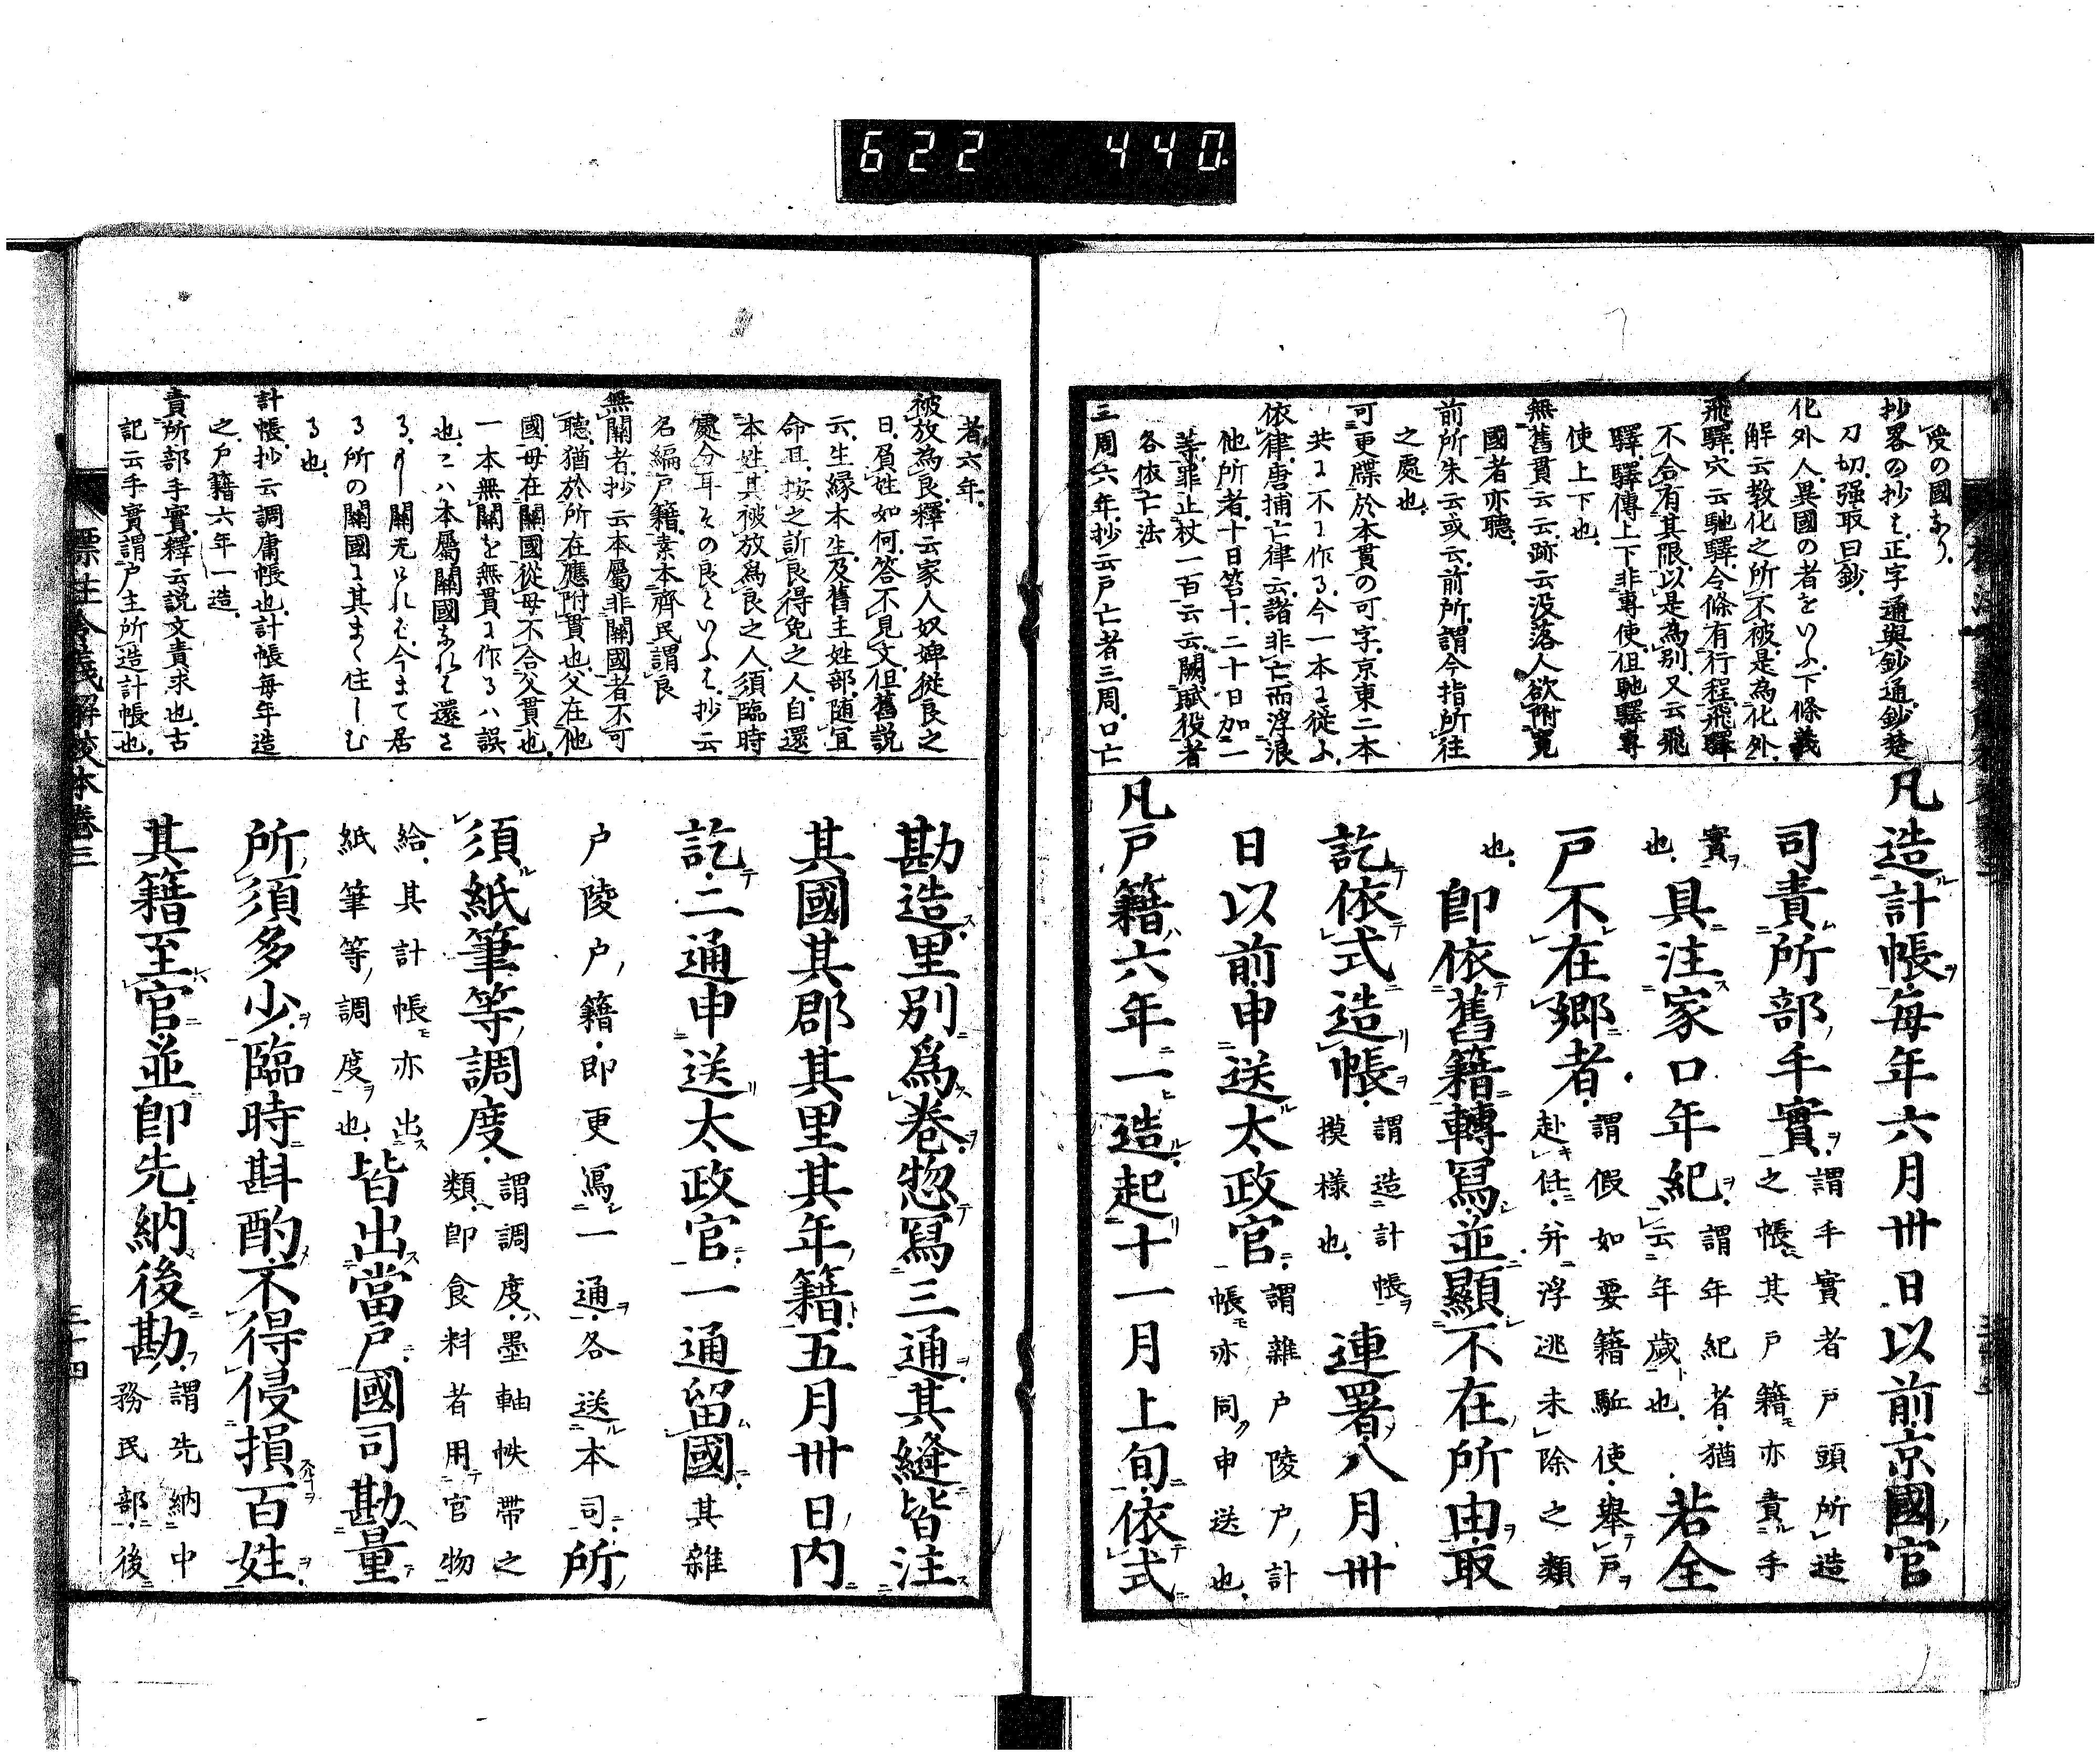 622 440
受の國あり.
抄畧の抄は.正字通與鈔通.鈔楚
刀切.强取曰鈔.
化外人.異國の者をいふ.下條義
解云教化之所不被.是為化外.
飛驛.穴云馳驛.今條有行程.飛驛
不合有其限.以是為別.又云飛
驛.驛傳上下非專使.但馳驛專
使上下也.
無舊貫云云.跡云没落人欲附寛
國者亦聽.
前所朱云或云.前所.謂今指所往
之處也.
可更牒於本貫の可字.京東二本
共に不に作る.今一本に従ふ.
依律.唐捕亡律云.諸非亡而浮浪
他所者.十日笞十.二十日加一
等.罪止杖一百云云.闕賦役者
各依亡法
三周六年.抄云戸亡者三周.口亡
凡造計帳.每年六月卅日以前.京國官
司責所部手實.謂手實者戸頭所造
之帳其戸籍亦責手
實也.具注家口年紀.謂年紀者.猶
云年歲也.若全
戸不在鄉者.謂假如要籍駈使.舉戸
赴任.幷浮逃未除之類
也.卽依舊籍轉寫.並顯不在所由.取
訖依式造帳.謂造計帳
摸樣也.連署.八月卅
日以前.申送太政官.謂雜戸陵戸計
帳亦同申送也.
凡戸籍六年一造.起十一月上旬.依式
者六年.
被放為良.釋云家人奴婢從良之
日.負姓如何.答不見文.但舊説
云.生縁本生.及舊主姓部.随宜
命耳.按之訴良得免之人.自還
本姓.其被放為良之人.須臨時
處分耳その良といふは.抄云
名編戸籍.素本齊民謂良
無關者.抄云本屬非關國者不可
聽.猶於所在應附貫也.父在他
國.母在關國從母不合父貫也.
一本無關を無貫に作るハ誤
也.こハ本屬關國なれは還さ
る所の關國に其まゝ住しむ
る也.
計帳.抄云調庸帳也.計帳每年造
之.戸籍六年一造.
責所部手實.釋云説文責求也.古
記云手實謂戸主所造計帳也.
勘造.里別爲卷.惣寫三通.其縫皆注
其國其郡其里其年籍.五月卅日內
訖.二通申送太政官.一通留國.其雜
戸陵戸籍.卽更寫一通.各送本司.所
須紙筆等調度.謂調度.墨軸帙帶之
類.卽食料者用官物
給.其計帳亦出
紙筆等調度也.皆出當戸.國司勘量
所須多少.臨時斟酌.不得侵損百姓.
其籍至官.並卽先納後勘.謂先納中
務民部.後
標注令義解校本卷三
三十四